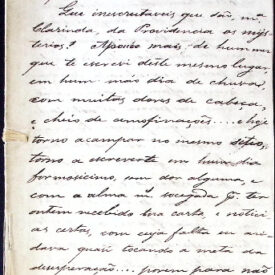 Que inexcrutaveis que são, m.ª
Clarinda, da Providencia os mys-
terios! Apouco mais de hum mez
que te escrevi deste mesmo lugar,
em hum máo dia de chuva,
com muitas dores de cabeça,
e cheio de amofinações.... e hoje
torno a campar no mesmo sitio,
torno a escreverte em hum dia
formosissimo, sem dor alguma, e
com a alma m.to socegada p.r ter
ontem recebido tua carta, e notici-
as certas, com cuja falta eu an-
dava quasi tocando a meta da
desesperação.... porem para não